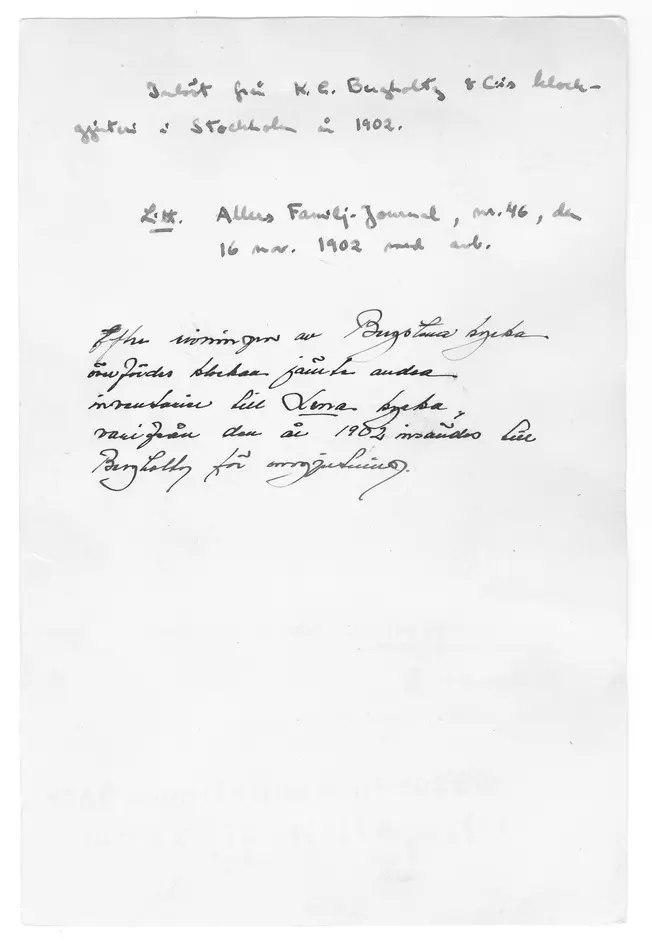 Inlöst från K. G. Bergholtz & C:is klock-
gjuteri i Stockholm år 1902.
Litt. Allers Familj-Journal, nr. 46, den
16 nov. 1902 med avb.
Efter rivningen av Bergstena kyrka
överfördes klockan jämte andra
inventarier till Lena kyrka,
varifrån den år 1902 insändes till
Bergholtz för omgjutning.